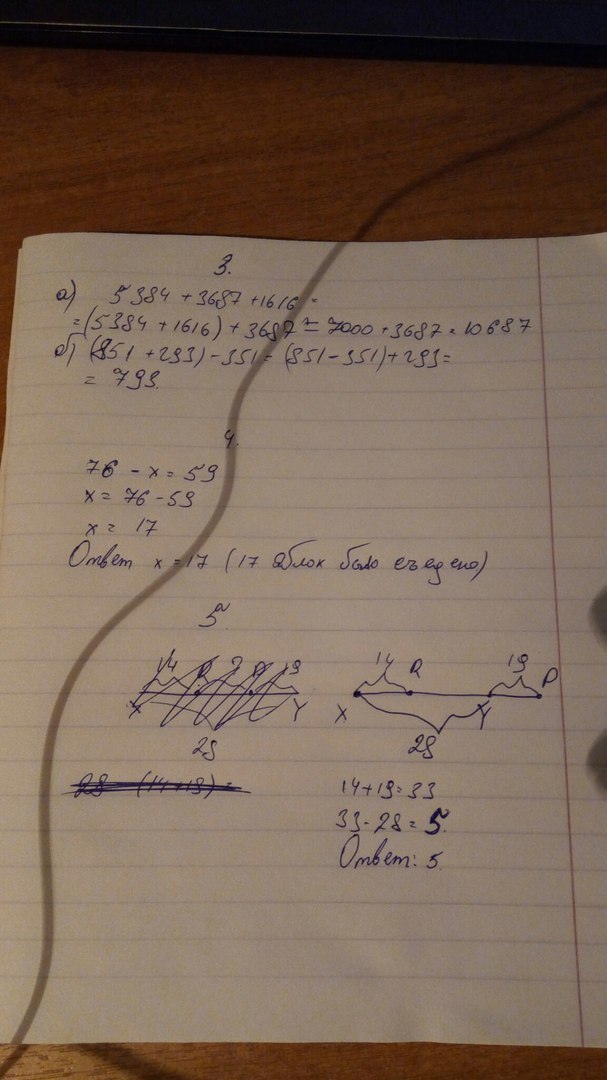 3.
а) 5384 + 3687 + 1616 =
= (5384 + 1616) + 3687 = 7000 + 3687 = 10687
б) (851 + 293) - 351 = (851 - 351) + 293 =
= 793.
4.
76 - x = 59
x = 76 - 59
x = 17
Ответ x = 17 (17 яблок было съедено)
5.
14 R ? P 19
X Y
28
28 - (14+19) =
14 R 19 P
X Y
28
14 + 19 = 33
33 - 28 = 5.
Ответ: 5.